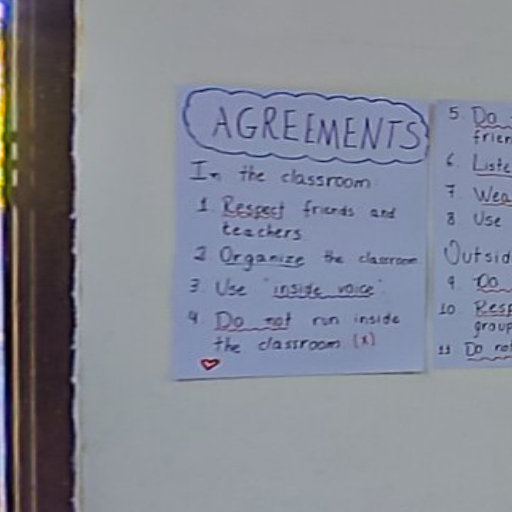 AGREEMENTS
In the classroom
1. Respect friends and
teachers
2. Organize the classroom
3. Use "inside voice".
4. Do not run inside
the classroom. (x)
5. Do
6.
7.
8. Use
9. Do
10.
11. Do not